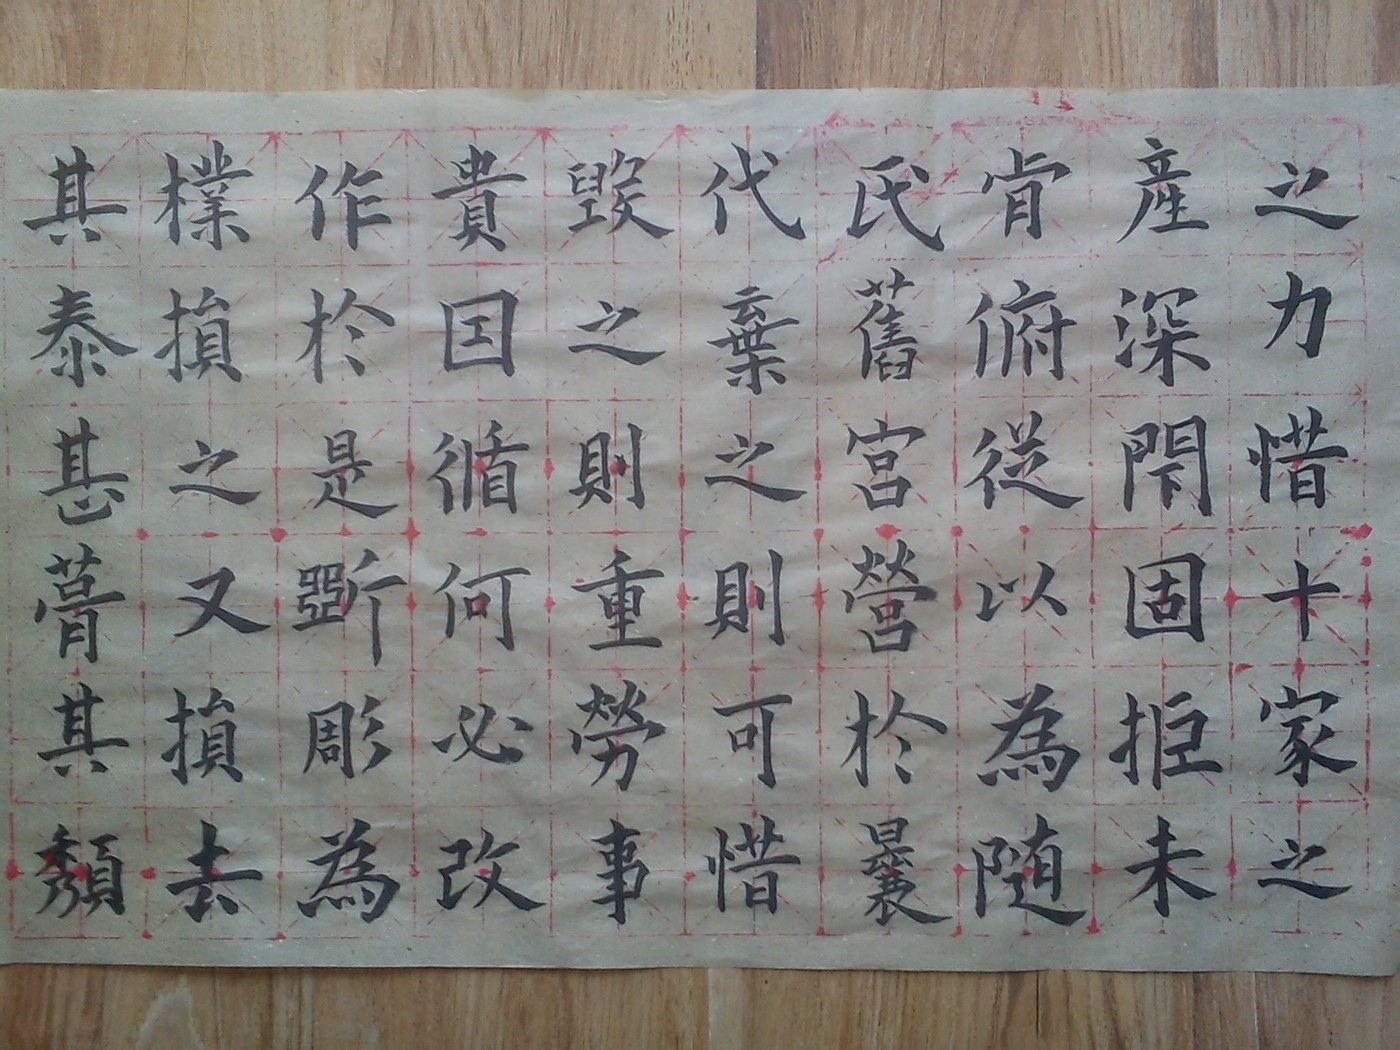 之力惜十家之
産深閇固拒未
肯俯従以為随
氏舊宮營於曩
代棄之則可惜
毀之則重勞事
貴因循何必改
作於是斵彫為
樸損之又損去
其泰甚葺其頹